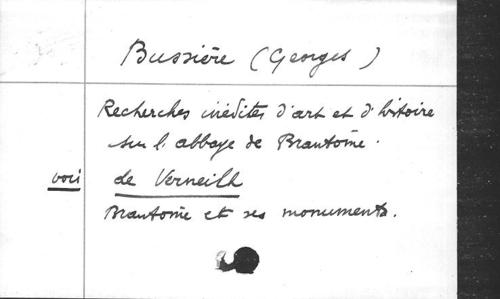 Bussière (Georges)
Recherches inédites d'art et d'histoire
sur l'abbaye de Brantôme.
voir de Verneilh
Brantôme et ses monuments.